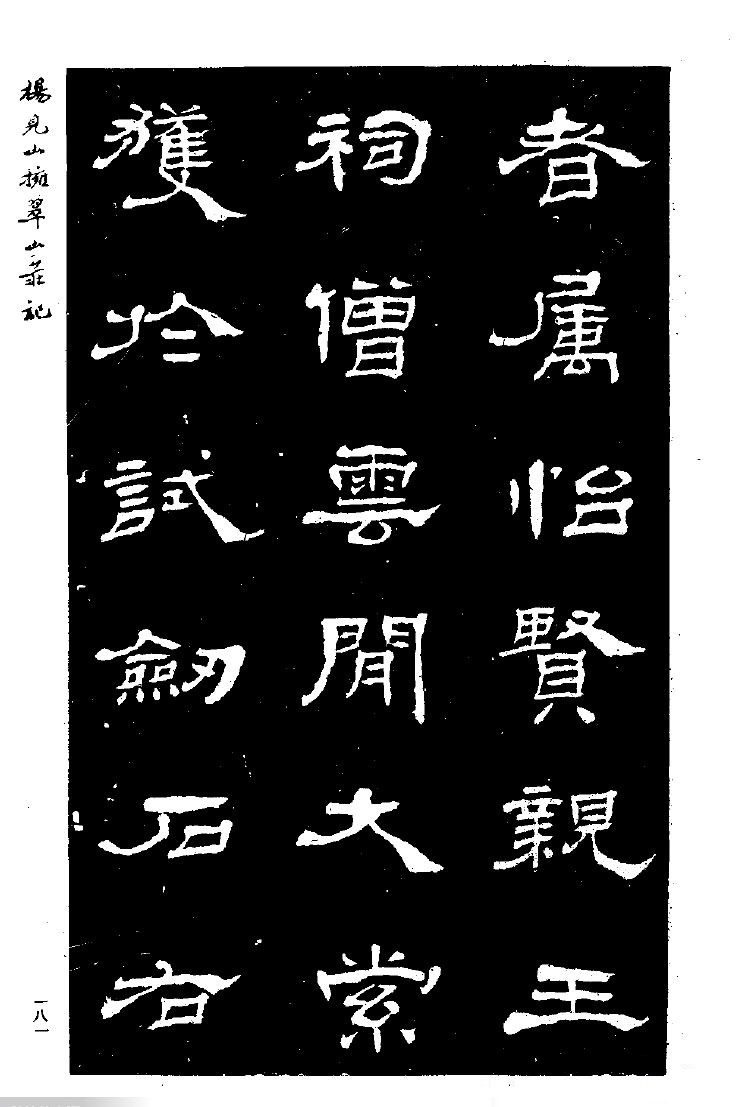 者属怡賢親王
祠僧雲閒大索
獲於試劒石右
楊見山擁翠山莊記
一八一